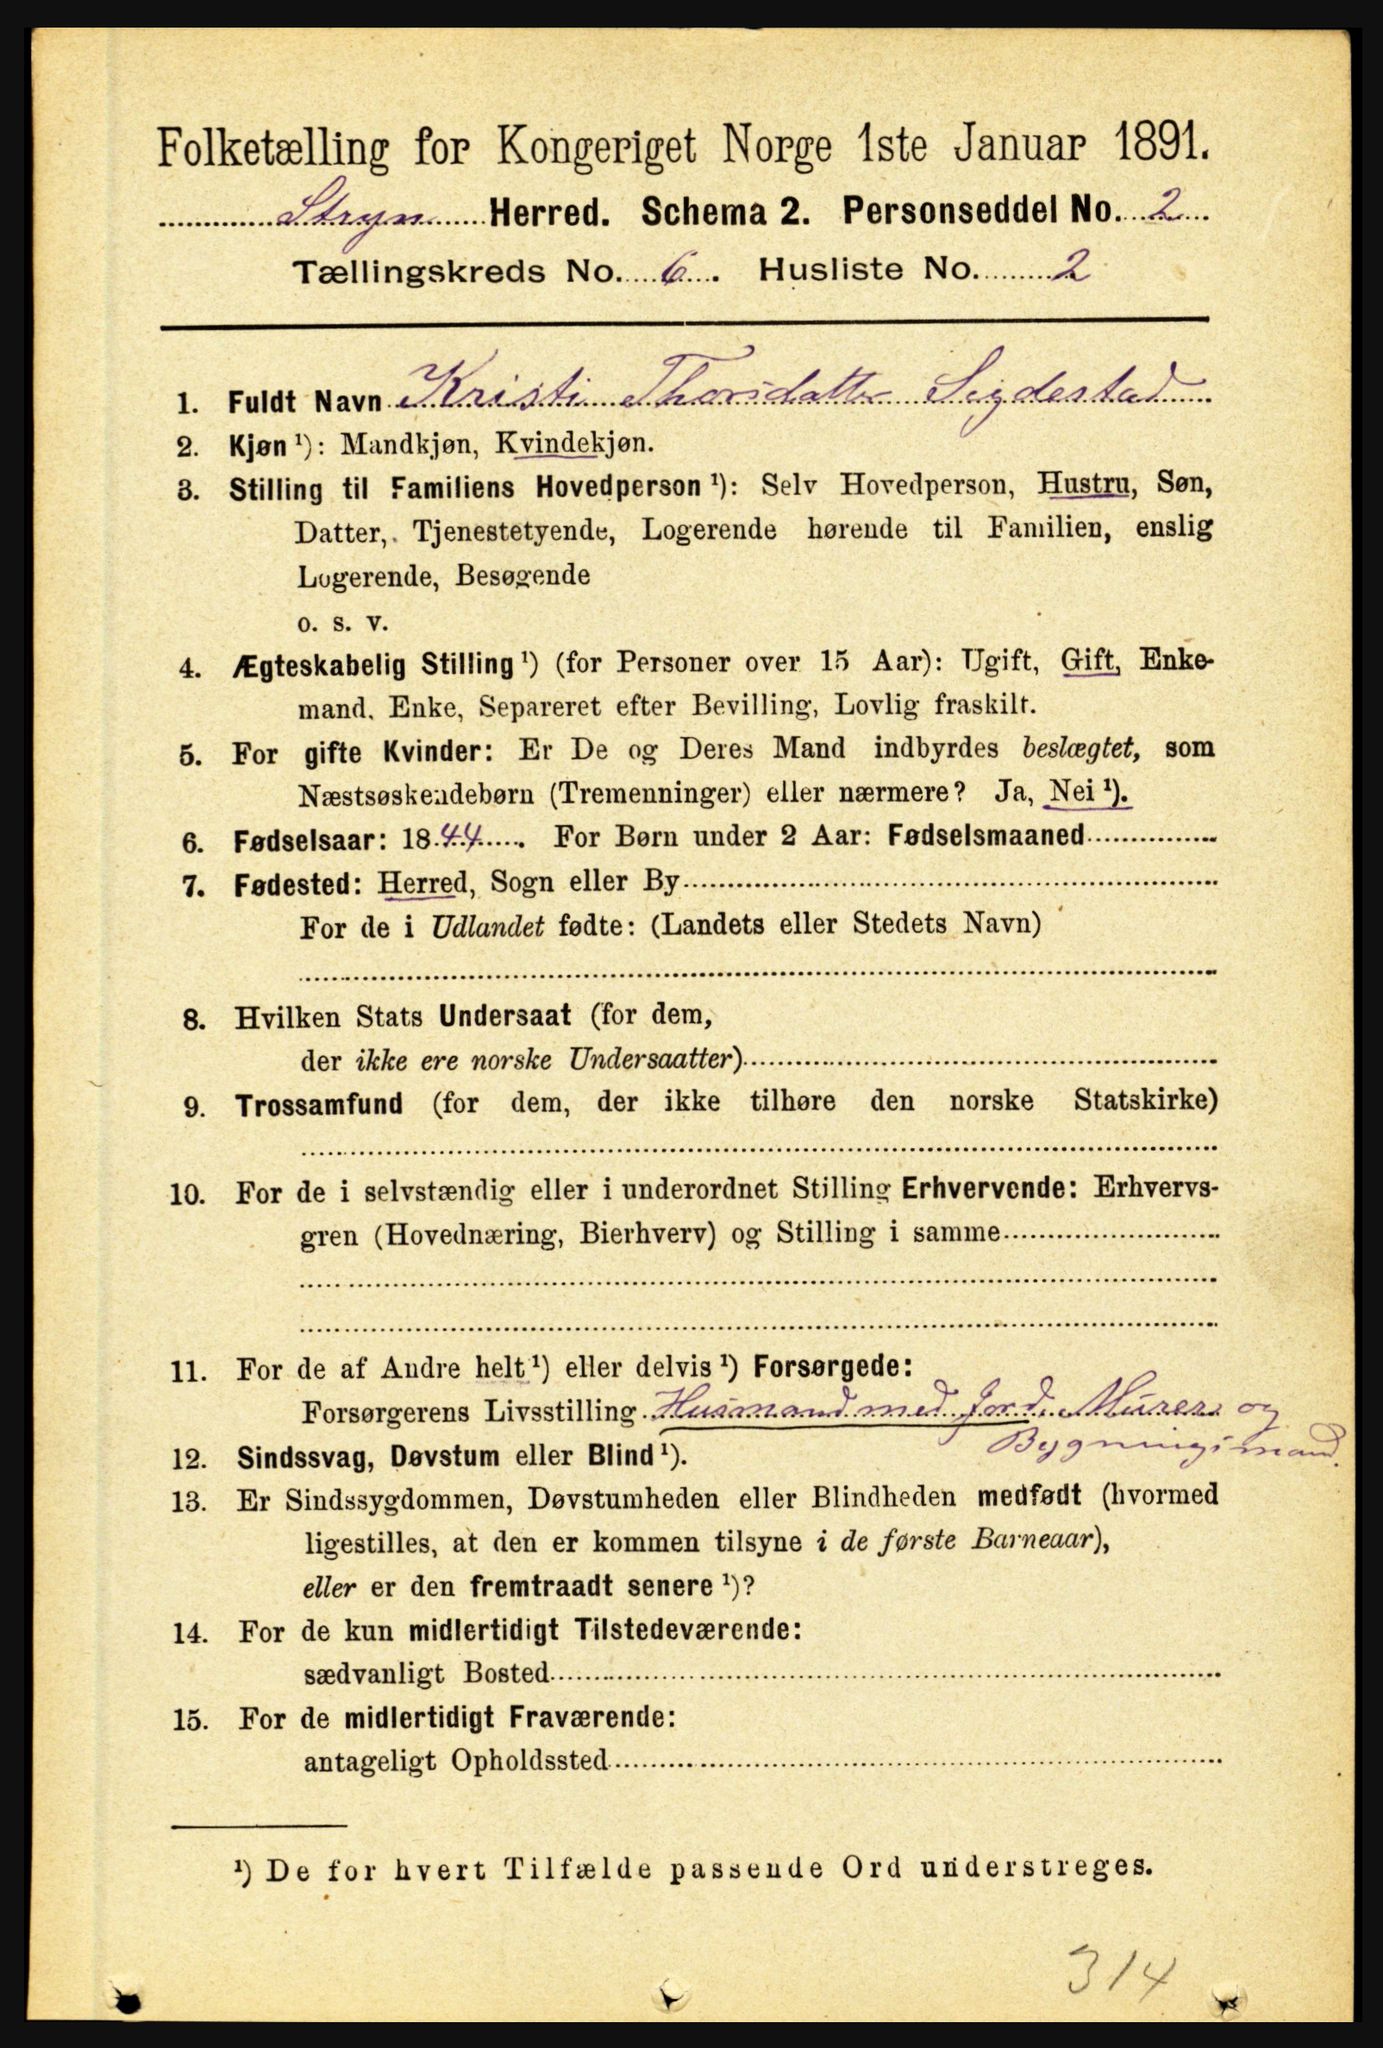 Folketælling for Kongeriget Norge 1ste Januar 1891.
Stryn Herred. Schema 2. Personseddel No. 2
Tællingskreds No. 6. Husliste No. 2
1. Fuldt Navn Kristi Thorsdatter Sigdestad
2. Kjøn ¹): Mandkjøn, Kvindekjøn.
3. Stilling til Familiens Hovedperson ¹): Selv Hovedperson, Hustru, Søn,
Datter, Tjenestetyende, Logerende hørende til Familien, enslig
Logerende, Besøgende
o. s. v.
4. Ægteskabelig Stilling ¹) (for Personer over 15 Aar): Ugift, Gift, Enke-
mand, Enke, Separeret efter Bevilling, Lovlig fraskilt.
5. For gifte Kvinder: Er De og Deres Mand indbyrdes beslægtet, som
Næstsøskendebørn (Tremenninger) eller nærmere? Ja, Nei ¹).
6. Fødselsaar: 1844. For Børn under 2 Aar: Fødselsmaaned
7. Fødested: Herred, Sogn eller By
For de i Udlandet fødte: (Landets eller Stedets Navn)
8. Hvilken Stats Undersaat (for dem,
der ikke ere norske Undersaatter)
9. Trossamfund (for dem, der ikke tilhøre den norske Statskirke)
10. For de i selvstændig eller i underordnet Stilling Erhvervende: Erhvervs-
gren (Hovednæring, Bierhverv) og Stilling i samme
11. For de af Andre helt ¹) eller delvis ¹) Forsørgede:
Forsørgerens Livsstilling Husmand med Jord, Murer og
Bygningsmand.
12. Sindssvag, Døvstum eller Blind ¹).
13. Er Sindssygdommen, Døvstumheden eller Blindheden medfødt (hvormed
ligestilles, at den er kommen tilsyne i de første Barneaar),
eller er den fremtraadt senere ¹)?
14. For de kun midlertidigt Tilstedeværende:
sædvanligt Bosted
15. For de midlertidigt Fraværende:
antageligt Opholdssted
¹) De for hvert Tilfælde passende Ord understreges.
314